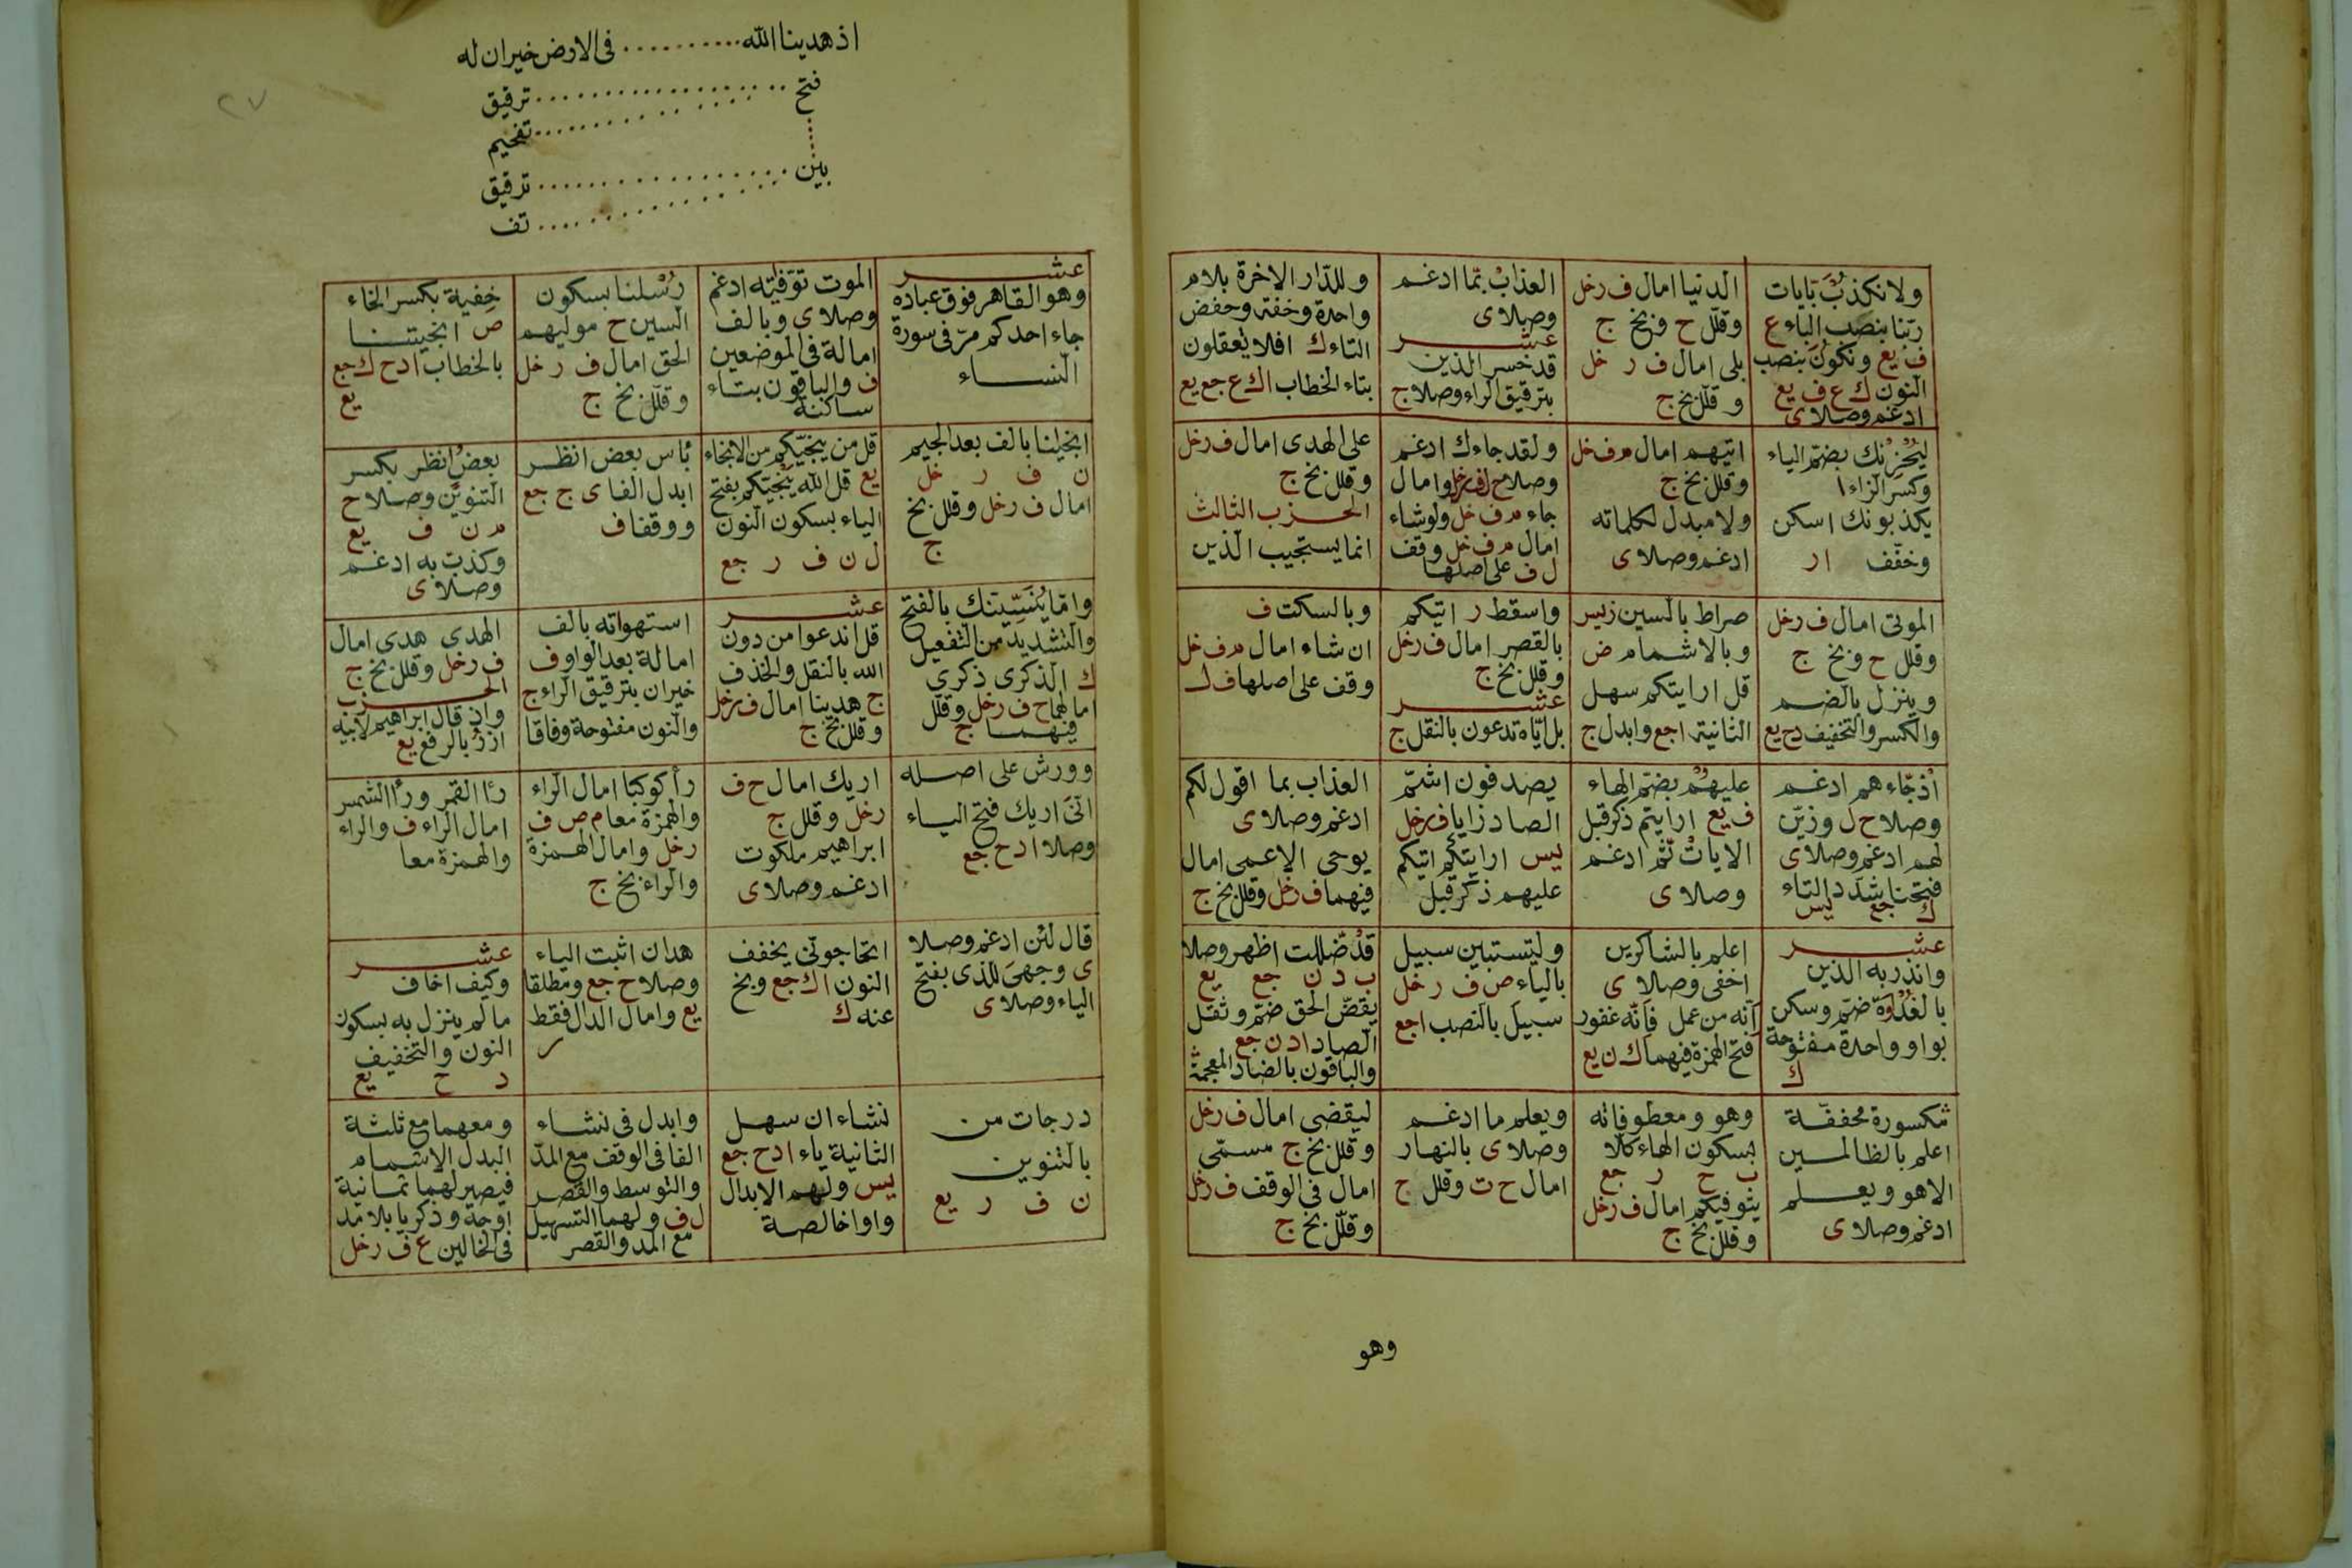 ولا نكذبُ بآيات
ربنا بنصب الباء ع
ف يع ونكونَ بنصب
النون ك ع ف يع
ادغم وصلا ى
الدنيا امال ف رخل
وقلل ح وبخ ج
بلى امال ف ر خل
وقلل بخ ج
العذابْ بما ادغم
وصلا ى
عشر
قد خسر الذين
بترقيق الراء وصلا ج
وللدار الاخرة بلام
واحدة وخفة وخفض
التاء ك افلا تعقلون
بتاء الخطاب ا ك ع جع يع
ليُحْزِنْك بضم الياء
وكسر الزاء ا
يكذبونك اسكن
وخفف ا ر
اتيهم امال م ف خل
وقلل بخ ج
ولا مبدل لكلماته
ادغم وصلا ى
ولقد جاءك ادغم
وصلا ح ل ف رخل وامال
جاء م ف خل ولو شاء
امال م ف خل وقف
ل ف على اصلها
على الهدى امال ف رخل
وقلل بخ ج
الحزب الثالث
انما يستجيب الذين
الموتى امال ف رخل
وقلل ح وبخ ج
وينزل بالضم
والكسر والتخفيف د ح يع
صراط بالسين ز يس
وبالاشمام ض
قل ارايتكم سهل
الثانية ا جع وابدل ج
واسقط ر اتيكم
بالقصر امال ف رخل
وقلل بخ ج
عشر
بل اياه تدعون بالنقل ج
وبالسكت ف
ان شاء امال م ف خل
وقف على اصلها ف ل
اذ جاءهم ادغم
وصلا ح ل وزين
لهم ادغم وصلا ى
فتحنا شدد التاء
ك جع يس
عليهُم بضم الهاء
ف يع ارايتم ذكر قبل
الاياتْ ثم ادغم
وصلا ى
يصدفون اشم
الصاد زايا ف رخل
يس ارايتكم اتيكم
عليهم ذكر قبل
العذاب بما اقول لكم
ادغم وصلا ى
يوحى الاعمى امال
فيهما ف رخل وقلل بخ ج
عشر
وانذر به الذين
بالغدوة ضم وسكن
بواو واحدة مفتوحة
ك
اعلم بالشاكرين
اخفى وصلا ى
انه من عمل فانه غفور
فتح الهمزة فيهما ك ن يع
وليستبين سبيل
بالياء ص ف ر خل
سبيلَ بالنصب ا جع
قد ضللت اظهر وصلا
ب د ن جع يع
يقص الحق ضم وثقل
الصاد ا د ن جع
والباقون بالضاد المعجمة
مكسورة مخففة
اعلم بالظالمين
الا هو ويعلم
ادغم وصلا ى
وهو ومعطوفاته
بسكون الهاء كلا
ب ح ر جع
يتوفيكم امال ف رخل
وقلل بخ ج
ويعلم ما ادغم
وصلا ى بالنهار
امال ح ت وقلل ج
ليقضى امال ف رخل
وقلل بخ ج مسمى
امال فى الوقف ف رخل
وقلل بخ ج
وهو
٢٧
اذ هدينا الله .......... فى الارض حيران له
فتح .......... ترقيق
.......... تفخيم
بين .......... ترقيق
.......... تف
عشر
وهو القاهر فوق عباده
جاء احدكم مر فى سورة
النساء
الموت توفته ادغم
وصلا ى وبالف
امالة فى الموضعين
ف والباقون بتاء
ساكنة
رسْلنا بسكون
السين ح موليهم
الحق امال ف ر خل
وقلل بخ ج
خِفية بكسر الخاء
ص انجيتنا
بالخطاب ا د ح ك جع
يع
انجينا بالف بعد الجيم
ن ف ر خل
امال ف رخل وقلل بخ
ج
قل من ينجيكم من الانجاء
يع قل الله ينجيكم بفتح
الياء بسكون النون
ل ن ف ر جع
بأس بعض انظر
ابدل الفا ى ج جع
ووقفا ف
بعضٍ انظر بكسر
التنوين وصلا ح
م ن ف يع
وكذب به ادغم
وصلا ى
واما يُنَسِّينك بالفتح
والتشديد من التفعيل
ك الذكرى ذكرى
امالهما ح ف رخل وقلل
فيهما ج
عشر
قل اندعوا من دون
الله بالنقل والحذف
ج هدينا امال ف رخل
وقلل بخ ج
استهواته بالف
امالة بعد الواو ف
حيران بترقيق الراء ج
والنون مفتوحة وفاقا
الهدى هدى امال
ف رخل وقلل بخ ج
الحزب
واذ قال ابراهيم لابيه
ازرُ بالرفع يع
وورش على اصله
انىَ اريك فتح الياء
وصلا ا د ح جع
اريك امال ح ف
رخل وقلل ج
ابراهيم ملكوت
ادغم وصلا ى
رأ كوكبا امال الراء
والهمزة معا م ص ف
رخل وامال الهمزة
والراء بخ ج
رأ القمر ورأ الشمس
امال الراء ف والراء
والهمزة معا
قال لئن ادغم وصلا
ى وجهىَ للذى بفتح
الياء وصلا ى
اتحاجونى يخفف
النون ا ك جع وبخ
عنه ك
هدان اثبت الياء
وصلا ح جع ومطلقا
يع وامال الدال فقط
ر
عشر
وكيف اخاف
ما لم ينزل به بسكون
النون والتخفيف
د ح يع
درجات من
بالتنوين
ن ف ر يع
نشاء ان سهل
الثانية ياء ا د ح جع
يس ولهم الابدال
واوا خالصة
وابدل فى نشاء
الفا فى الوقف مع المد
والتوسط والقصر
ل ف ولهما التسهيل
مع المد والقصر
ومعهما مع ثلثة
البدل الاشمام
فيصير لهما ثمانية
اوجه وذكريا بلا مد
فى الحالين ع ف رخل